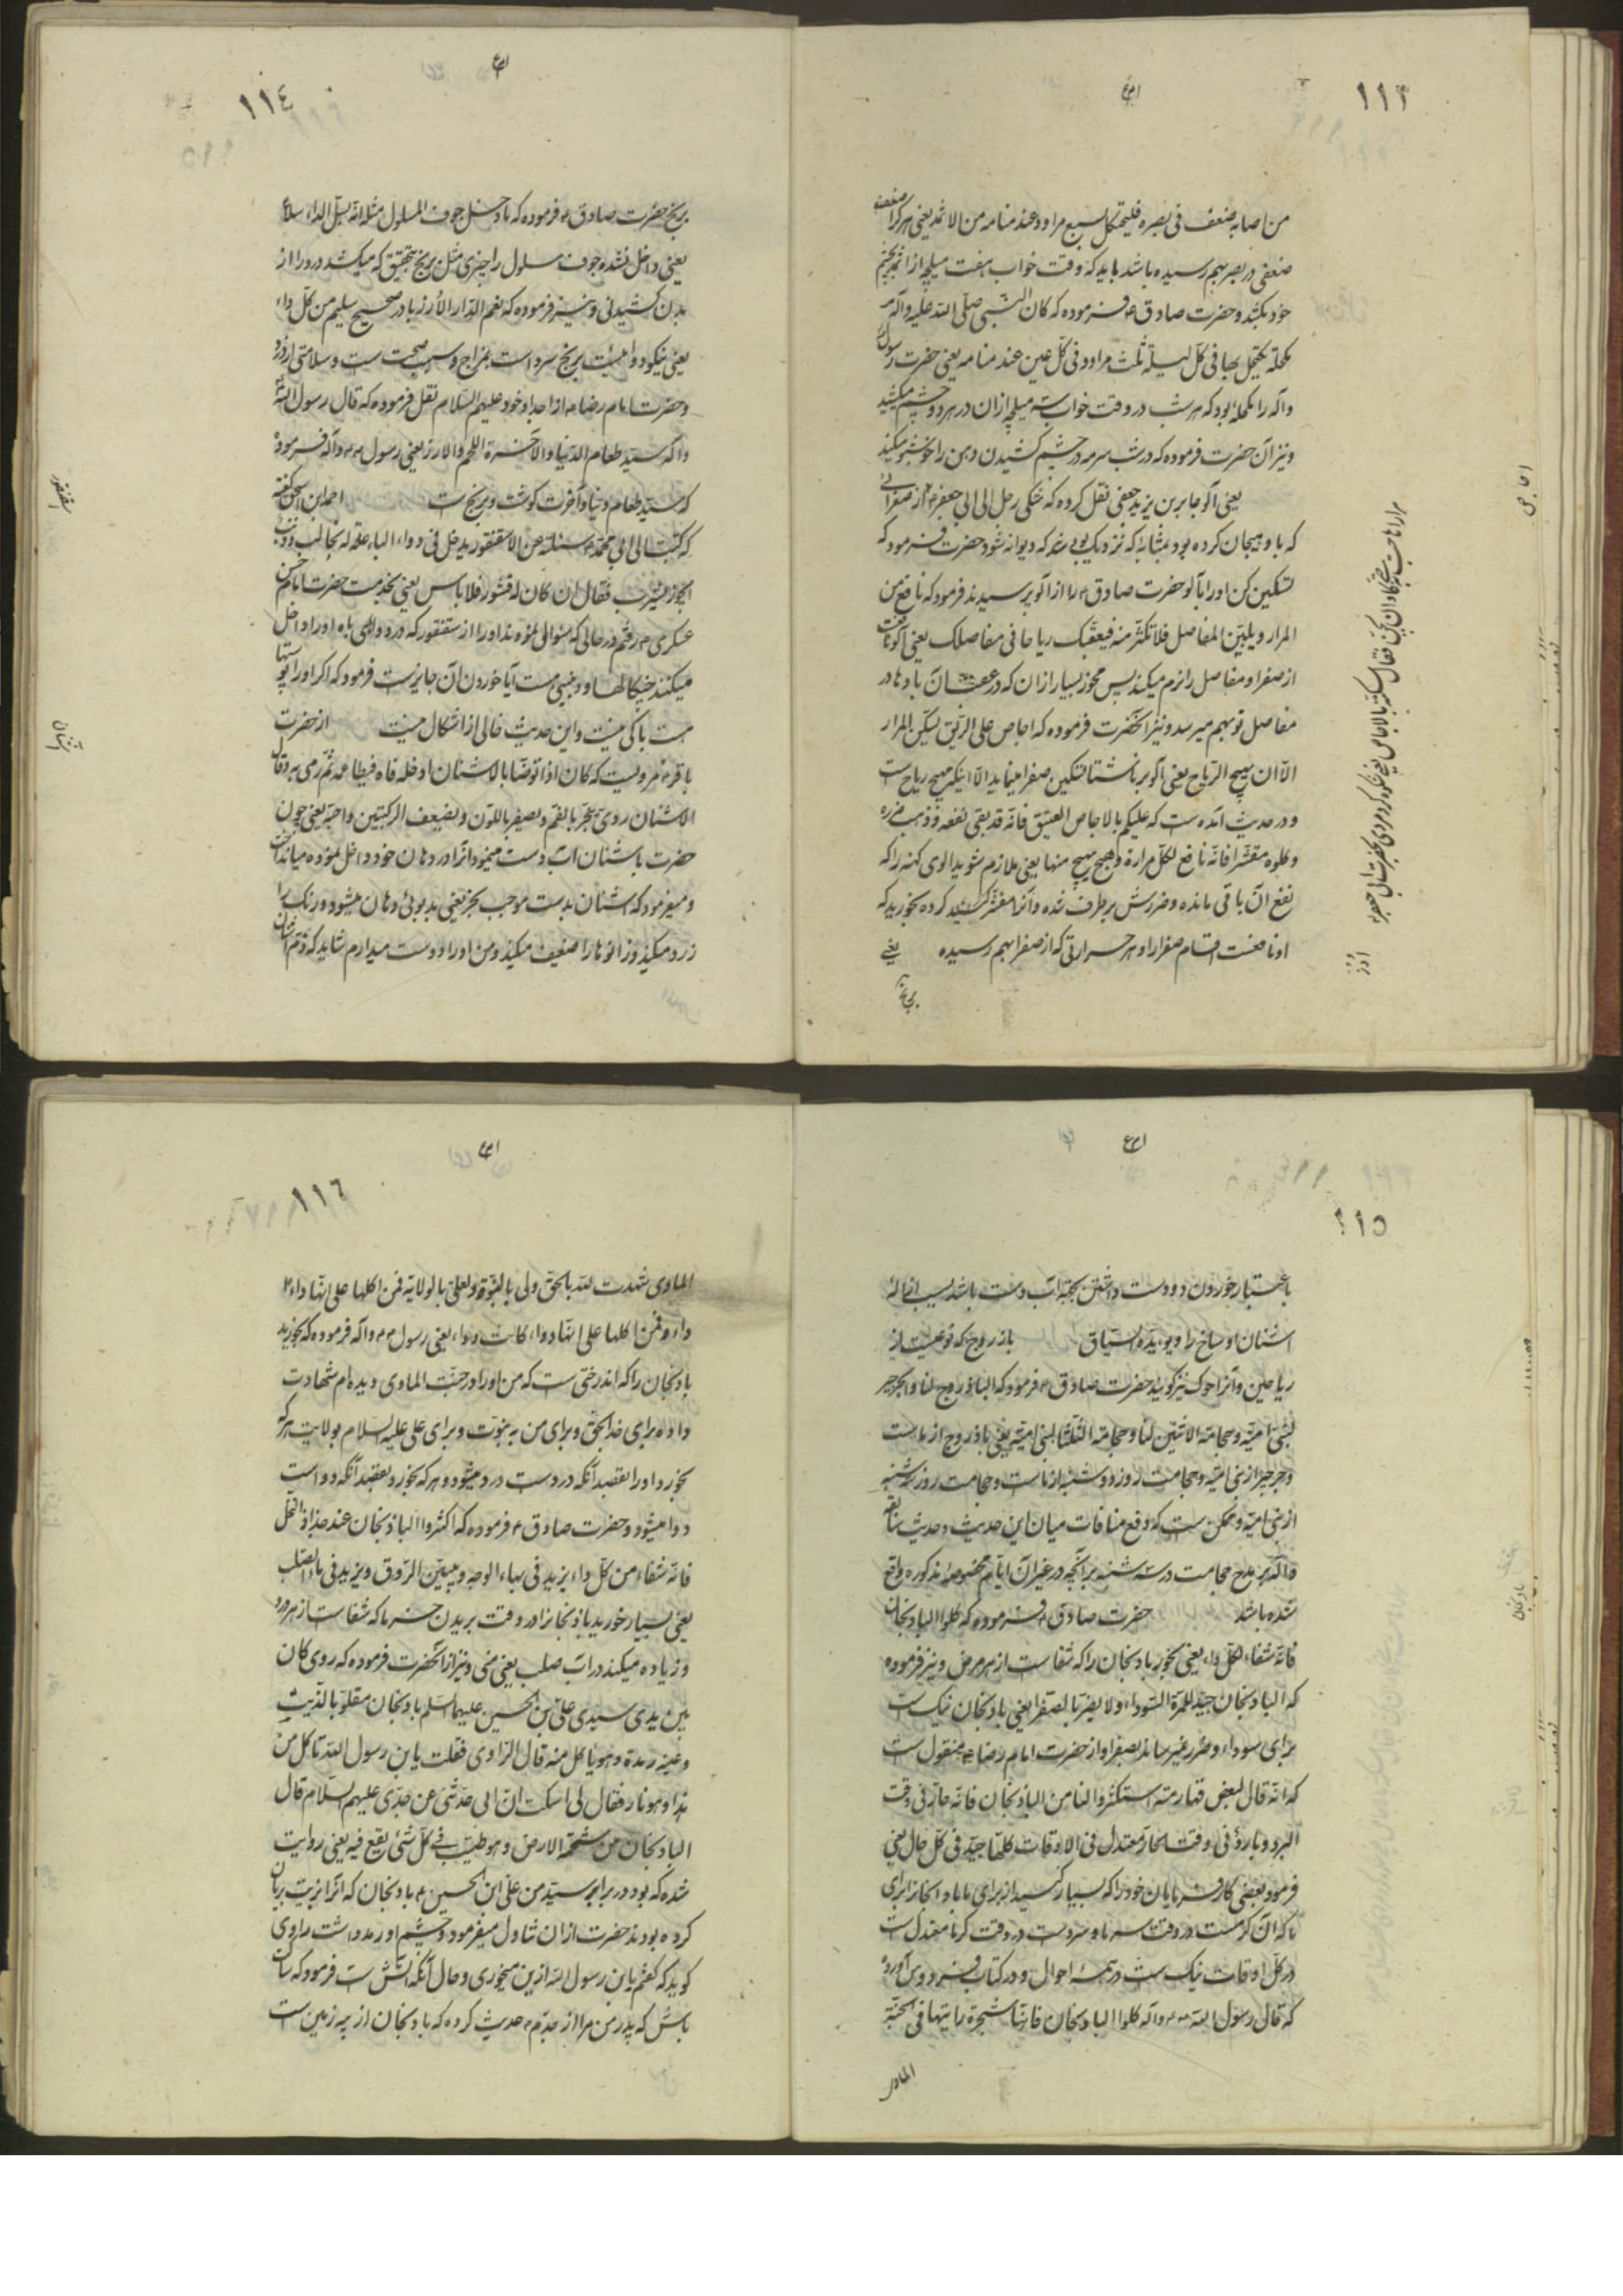 ١١٣
من اصابه ضعف فی بصره فلیکتحل سبع مراود عند منامه من الاثمد یعنی هرکرا ضعف
ضعفی در بصر بهم رسیده باشد باید که وقت خواب هفت میلچه از اثمد بچشم
خود بکشد و حضرت صادق ع فرموده که کان النبی صلی الله علیه وآله
مکحلة یکتحل بها فی کل لیلة ثلث مراود فی کل عین عند منامه یعنی حضرت رسول
وآله را مکحله بود که هر شب در وقت خواب سه میلچه ازان در هر دو چشم میکشید
و نیز آن حضرت فرموده که در شب سرمه در چشم کشیدن دهن را خوشبو میکند
یعنی آلو جابر بن یزید جعفی نقل کرده که شکی رجل الی ابی جعفر ع از صفرائی
که با و هیجان کرده بود بمثابه که نزدیک بوی شد که دیوانه شود حضرت فرمود که
تسکین کن اورا بآلو حضرت صادق ع را از آلو پرسیدند فرمود که نافع من
المرار ویلین المفاصل فلا تکثر منه فیعقبک ریاحا فی مفاصلک یعنی آلو نافعست
از صفرا و مفاصل را نرم میکند پس مخور بسیار ازان که در عقب آن بادها در
مفاصل تو بهم میرسد و نیز آنحضرت فرموده که اجاص علی الریق یسکن المرار
الا ان یهیج الریاح یعنی آلو بر ناشتا تسکین صفرا مینماید الا اینکه مهیج ریاح است
و در حدیث آمده ست که علیکم بالاجاص العتیق فانه قد بقی نفعه و ذهب ضرره
و کلوه مقشرا فانه نافع لکل مرارة و هیج یهیج منها یعنی ملازم شوید الوی کهنه را که
نفع آن باقی مانده و ضررش برطرف شده و آنرا مقشر کرده بخورید که
او نافعست اقسام صفرا را و هر حرارتی که از صفرا بهم رسیده یعنی
برنج
اجاص
ارز
١١٤
برنج حضرت صادق ع فرموده که ما دخل جوف المسلول مثله انه یسل الداء سلا
یعنی داخل نشده جوف مسلول را چیزی مثل برنج بتحقیق که میکشد درد را از
بدن کشیدنی و نیز فرموده که نعم الدار الأرز بارد صحیح سلیم من کل داء
یعنی نیکو دوائیست برنج سرد است بمزاج و سبب صحت ست و سلامتی از درد
و حضرت امام رضا ع از اجداد خود علیهم السلام نقل فرموده که قال رسول الله
وآله سید طعام الدنیا والآخرة اللحم والارز یعنی رسول ص وآله فرموده
که سید طعام دنیا و آخرت گوشت و برنج ست احمد ابن اسحق گفته
که کتبت الی ابی محمد ع سئلته عن الاسقنقور یدخل فی دواء الباه له مخالب و ذنب
ایجوز یشرب فقال ان کان له قشور فلا باس یعنی بخدمت حضرت امام حسن
عسکری ع رفتم در حالی که سئوالی نموده بودند اورا از سقنقور که در دوای باه اورا داخل
میکنند چنگالها و دنبی ست آیا خوردن آن جایز ست فرمود که اگر اورا پوستها
هست باکی نیست و این حدیث خالی از اشکال نیست از حضرت
باقر ع مرویست که کان اذا توضا بالاشنان ادخله فاه فیطاعمه ثم رمی به و قال
الاشنان ردی یبخر بالفم و یصفر باللون و یضیعف الرکبتین و احبه یعنی چون
حضرت با شنان آب دست مینمود آنرا در دهان خود داخل نموده میانداخت
و میفرمود که اشنان بدست موجب بخر یعنی بدبوئی دهان میشود و رنک را
زرد میکند و زانوها را ضعیف میکند و من اورا دوست میدارم شاید که ذم اشنان
سقنقور
اشنان
١١٥
باعتبار خوردن و دوست داشتن بجهة آب دست باشد بسبب ازاله
اشنان اوساخ را و یویده السیاق باذروج که نوعیست از
ریاحین و آنرا حوک نیز گویند حضرت صادق ع فرمود که الباذروج لنا والجرجیر
لبنی امیه و حجامة الاثنین لنا و حجامة الثلثا لبنی امیة یعنی باذروج از ماست
و جرجیر از بنی امیه و حجامت روز دوشنبه از ماست و حجامت روز سه شنبه
از بنی امیه و ممکن ست که دفع منافات میان این حدیث و حدیث سابقه
دآله بر مدح حجامت در سه شنبه بر آنچه در غیر آن ایام مخصوصه مذکوره واقع
شده باشد حضرت صادق ع فرموده که کلوا الباذنجان
فانه شفاء لکل داء یعنی بخور بادنجان را که شفا ست از هر مرض و نیز فرموده
که الباذنجان جید للمرة السوداء ولا یضر بالصفرا یعنی بادنجان نیک ست
برای سوداء و ضرر نمیرساند بصفرا و از حضرت امام رضا ع منقول ست
که انه قال لبعض قهارمته استکثروا لنا من الباذنجان فانه حار فی وقت
البرد و بارد فی وقت الحار معتدل فی الاوقات کلها جید فی کل حال یعنی
فرمود بعضی کارفرمایان خود را که بسیار کنید از برای ما باد انجان را برای
آنکه آن گرمست در وقت سرما و سردست در وقت گرما معتدل ست
در کل اوقات نیک ست در همه احوال و در کتاب فردوس آورده
که قال رسول الله ص وآله کلوا الباذنجان فانها شجرة رایتها فی الجنة
الماوی
بادنجان
١١٦
الماوی شهدت لله بالحق ولی بالنبوة ولعلی بالولایة فمن اکلها علی انها داء کانت
داء و فمن اکلها علی انها دواء کانت دواء یعنی رسول ص وآله فرموده که بخورید
بادنجان را که اندرختی ست که من اورا در جنت الماوی دیده ام شهادت
داده برای خدا بحق و برای من به نبوت و برای علی علیه السلام بولایت هرکه
بخورد اورا بقصد آنکه دردست درد میشود و هر که بخورد بقصد آنکه دواست
دوا میشود و حضرت صادق ع فرموده که اکثروا الباذنجان عند جذاذ النخل
فانه شفاء من کل داء یزید فی بهاء الوجه و یبین العروق و یزید فی ماء الصلب
یعنی بسیار خورید باذنجانرا در وقت بریدن خرما که شفا ست از هر درد
و زیاده میکند در آب صلب یعنی منی و نیز از آنحضرت فرموده که روی کان
بین یدی سیدی علی بن الحسین علیهما السلم بادنجان مقلو بالزیت
و عینه رمدة و هو یاکل منه قال الراوی فقلت یا بن رسول الله تاکل من
هذا و هو نار فقال لی اسکت ان ابی حدثنی عن جدی علیهم السلام قال
البادنجان من شحمة الارض و هو طیب فی کل شئی یقع فیه یعنی روایت
شده که بود در برابر سید من علی ابن الحسین ع بادنجان که آنرا بزیت بریان
کرده بودند حضرت ازان تناول میفرمود و چشم او رمد داشت راوی
گوید که گفتم یا بن رسول الله ازین میخوری و حال آنکه آتش ست فرمود که ساکت
باش که پدر من مرا از جدم ع حدیث کرده که بادنجان از پیه زمین ست